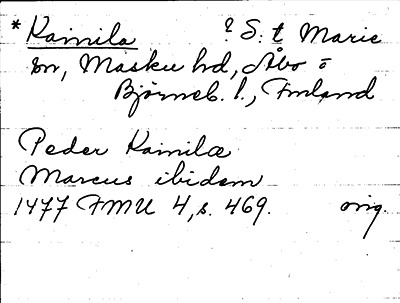 * Kamila ? S:t Marie
sn, Masku hd, Åbo o
Björneb. l., Finland
Peder Kamilæ
Marcus ibidem
1477 FMU 4, s. 469. orig.